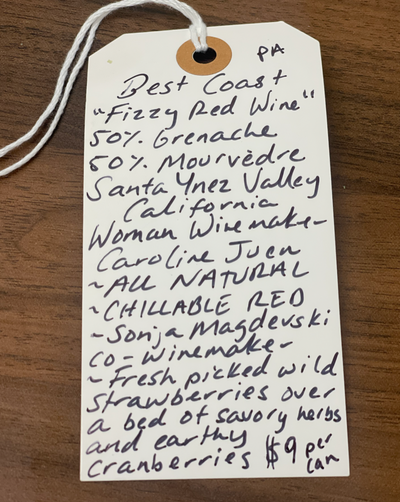 PA
Best Coast
"Fizzy Red Wine"
50% Grenache
50% Mourvèdre
Santa Ynez Valley
California
Woman Winemaker
Caroline Juen
~ALL NATURAL
~CHILLABLE RED
~Sonja Magdevski
co-winemaker
~Fresh picked wild
strawberries over
a bed of savory herbs
and earthy
cranberries $9 per
can